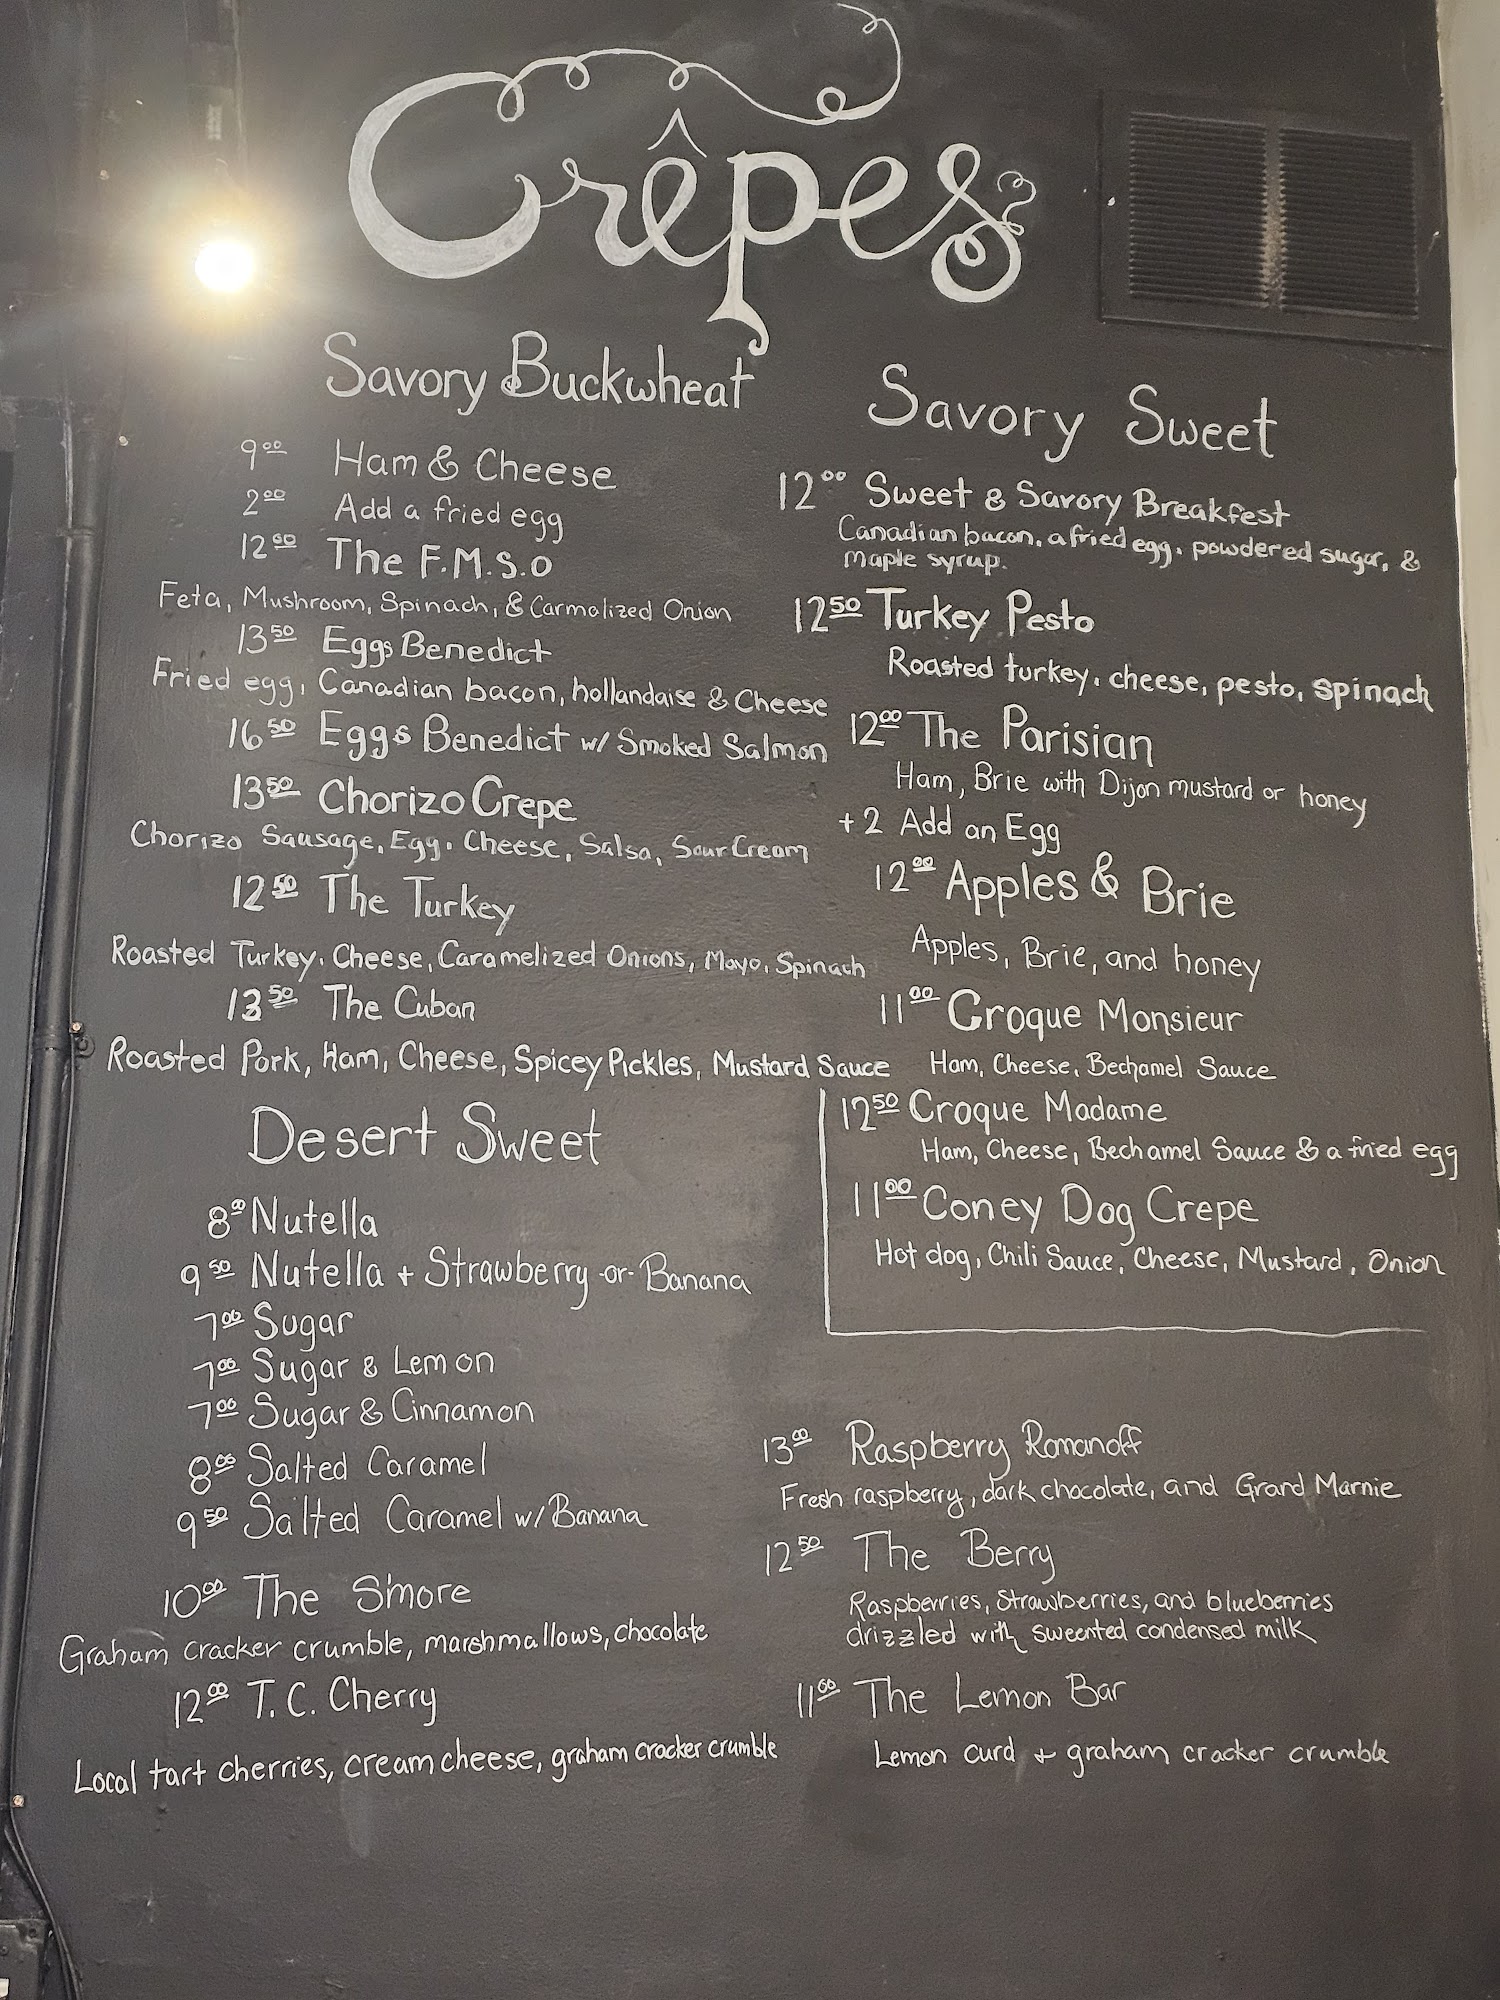 Crêpes
Savory Buckwheat
9.00 Ham & Cheese
2.00 Add a fried egg
12.00 The F.M.S.O
Feta, Mushroom, Spinach, & Carmalized Onion
13.50 Eggs Benedict
Fried egg, Canadian bacon, hollandaise & Cheese
16.50 Eggs Benedict w/ Smoked Salmon
13.50 Chorizo Crepe
Chorizo Sausage, Egg, Cheese, Salsa, Sour Cream
12.50 The Turkey
Roasted Turkey, Cheese, Caramelized Onions, Mayo, Spinach
13.50 The Cuban
Roasted Pork, Ham, Cheese, Spicey Pickles, Mustard Sauce
Savory Sweet
12.00 Sweet & Savory Breakfest
Canadian bacon, a fried egg, powdered sugar, &
maple syrup.
12.50 Turkey Pesto
Roasted turkey, cheese, pesto, spinach
12.00 The Parisian
Ham, Brie with Dijon mustard or honey
+2 Add an Egg
12.00 Apples & Brie
Apples, Brie, and honey
11.00 Croque Monsieur
Ham, Cheese, Bechamel Sauce
12.50 Croque Madame
Ham, Cheese, Bechamel Sauce & a fried egg
11.00 Coney Dog Crepe
Hot dog, Chili Sauce, Cheese, Mustard, Onion
Desert Sweet
8.00 Nutella
9.50 Nutella + Strawberry -or- Banana
7.00 Sugar
7.00 Sugar & Lemon
7.00 Sugar & Cinnamon
8.00 Salted Caramel
9.50 Salted Caramel w/ Banana
10.00 The S'more
Graham cracker crumble, marshmallows, chocolate
12.00 T.C. Cherry
Local tart cherries, cream cheese, graham cracker crumble
13.00 Raspberry Romanoff
Fresh raspberry, dark chocolate, and Grand Marnie
12.50 The Berry
Raspberries, Strawberries, and blueberries
drizzled with sweented condensed milk
11.00 The Lemon Bar
Lemon curd + graham cracker crumble